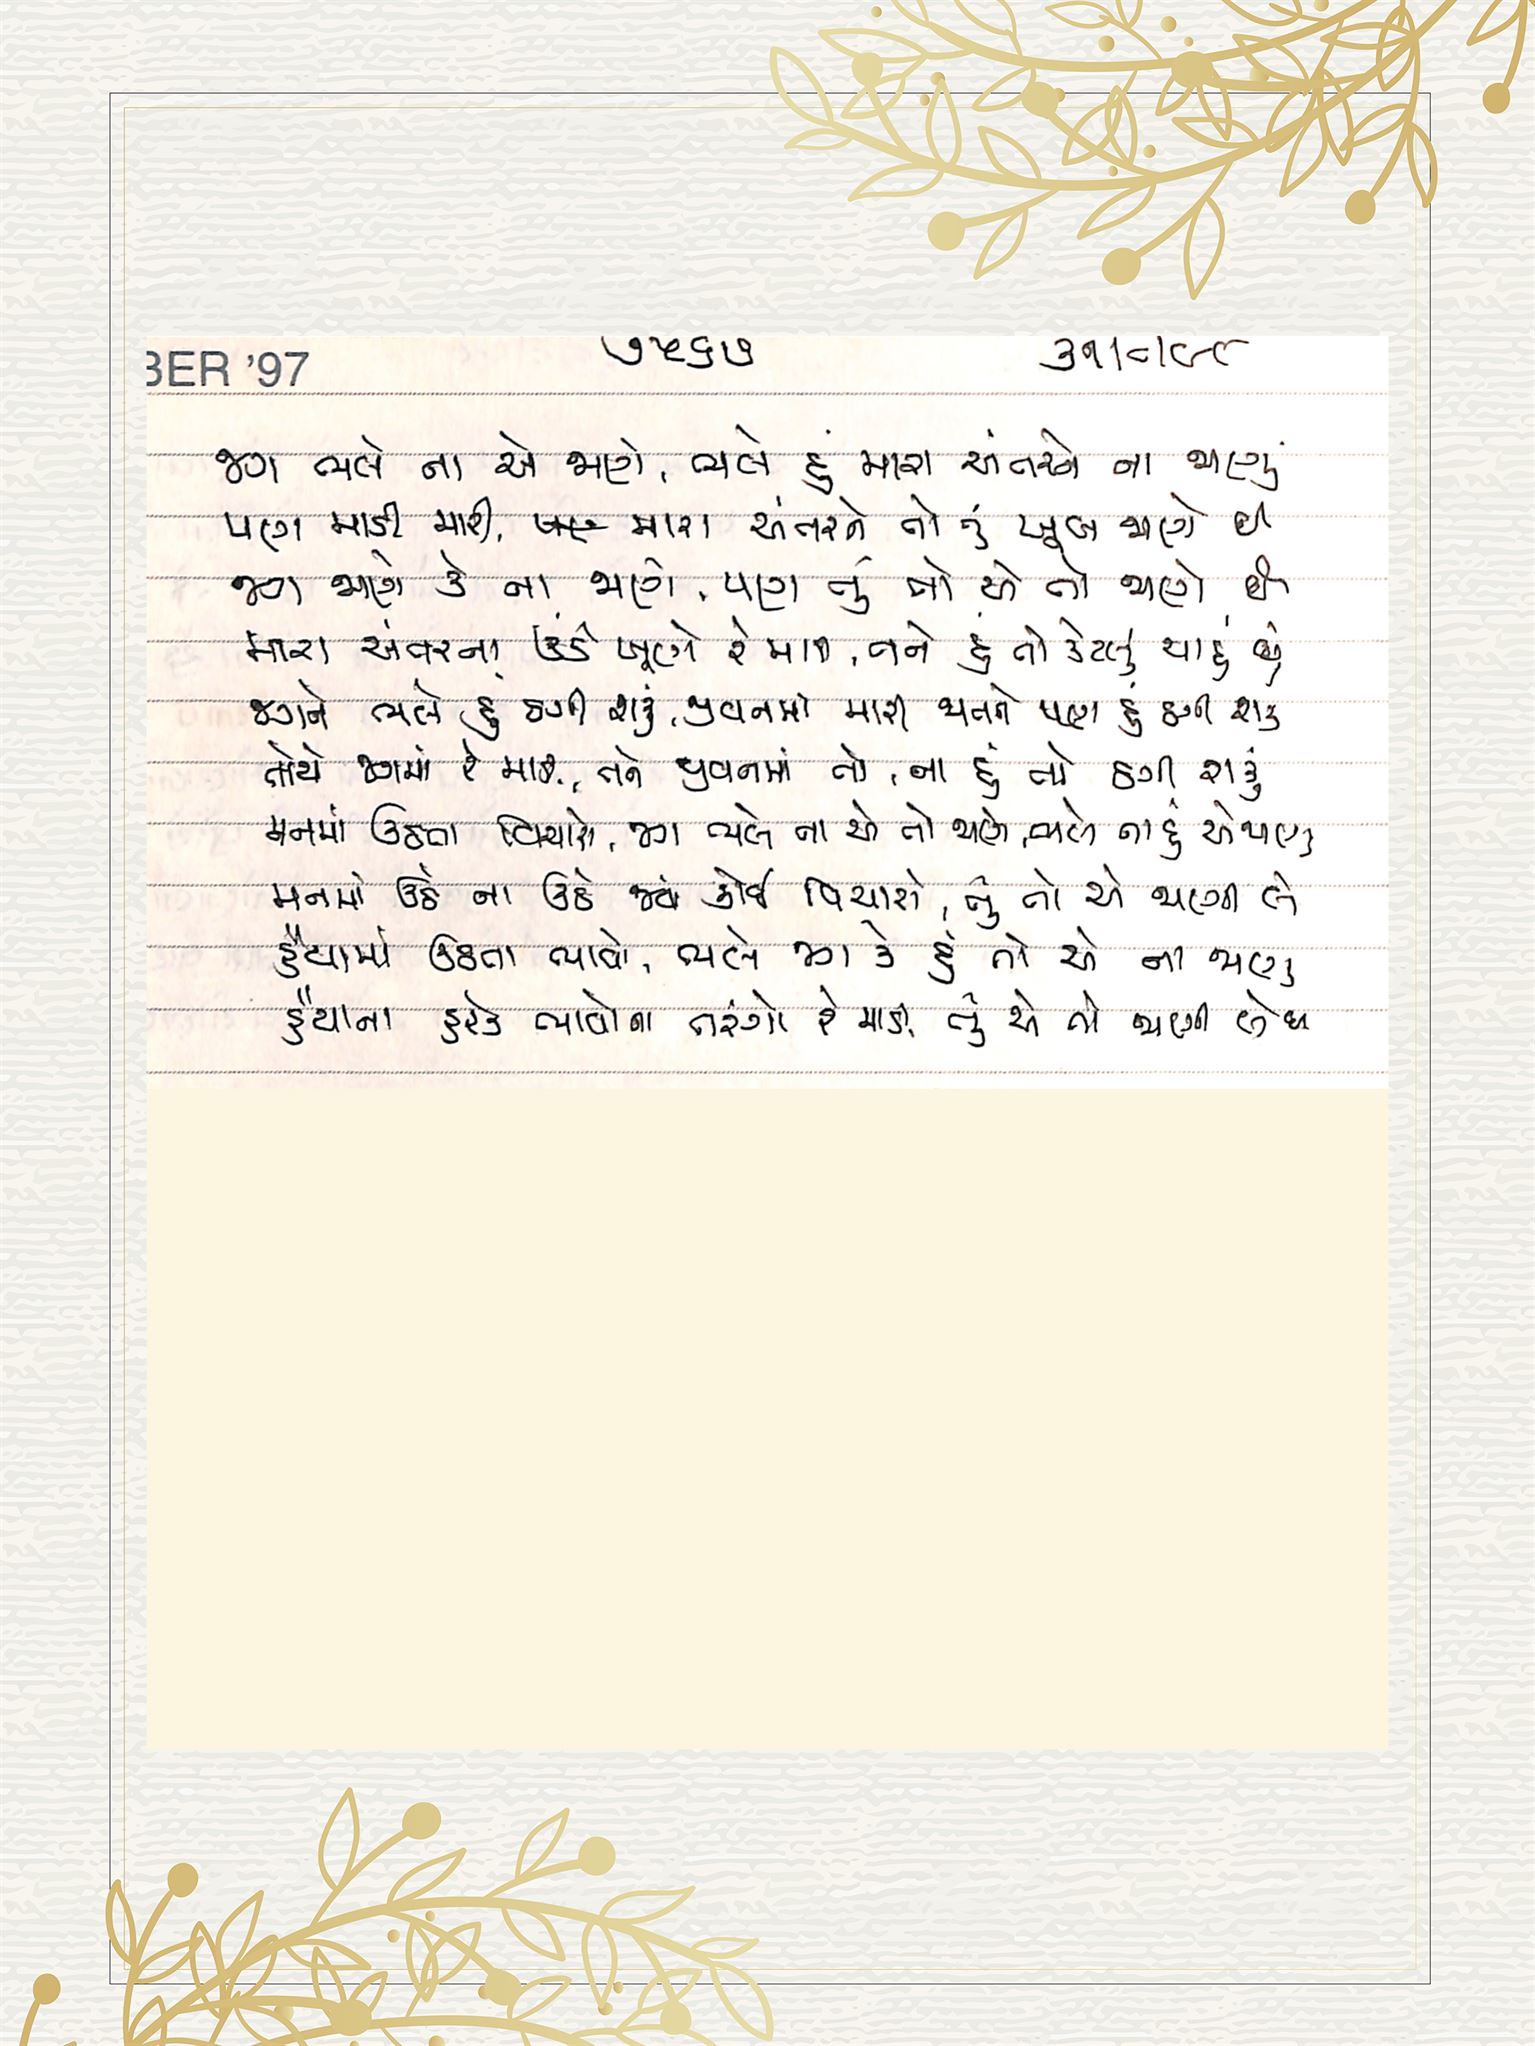 BER '97 ૭૫૬૭ ૩૧/૮/૯૯
જગ ભલે ના એ જાણે, ભલે હું મારા અંતરને ના જાણું
પણ માડી મારી, મારા અંતરને તો તું ખૂબ જાણે છે
જગ જાણે કે ના જાણે, પણ તું તો એ તો જાણે છે
મારા અંતરના ઉંડે ખૂણે રે માડી, તને હું તો કેટલું ચાહું છું
જગને ભલે હું ઠગી શકું, જીવનમાં મારી જાતને પણ હું ઠગી શકું
તોયે જગમાં રે માડી, તને જીવનમાં તો, ના હું તો ઠગી શકું
મનમાં ઉઠતા વિચારો, જગ ભલે ના એ તો જાણે, ભલે ના હું એ જાણું
મનમાં ઉઠે ના ઉઠે જ્યાં કોઈ વિચારો, તું તો એ જાણી લે
હૈયામાં ઉઠતા ભાવો, ભલે જગ કે હું તો એ ના જાણું
હૈયાના હરેક ભાવોના તરંગો રે માડી, તું એ તો જાણી લે છે